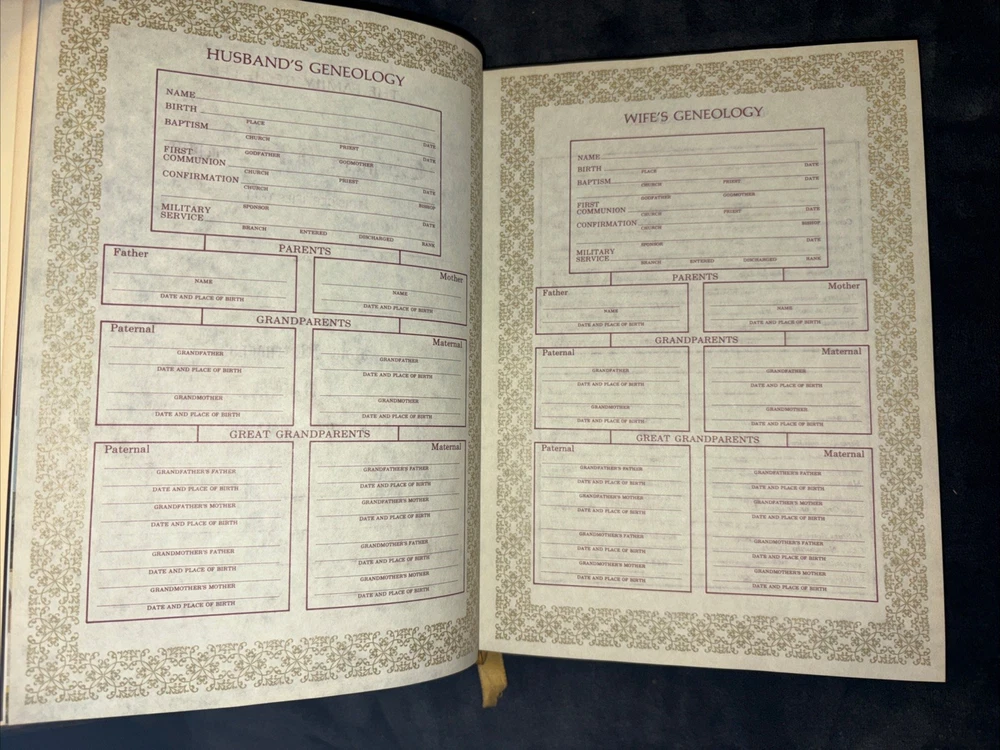 HUSBAND'S GENEOLOGY
NAME
BIRTH
PLACE DATE
BAPTISM
CHURCH PRIEST DATE
GODFATHER GODMOTHER
FIRST
COMMUNION
CHURCH PRIEST DATE
CONFIRMATION
CHURCH BISHOP
SPONSOR
MILITARY
SERVICE
BRANCH ENTERED DISCHARGED RANK
PARENTS
Father
NAME
DATE AND PLACE OF BIRTH
Mother
NAME
DATE AND PLACE OF BIRTH
GRANDPARENTS
Paternal
GRANDFATHER
DATE AND PLACE OF BIRTH
GRANDMOTHER
DATE AND PLACE OF BIRTH
Maternal
GRANDFATHER
DATE AND PLACE OF BIRTH
GRANDMOTHER
DATE AND PLACE OF BIRTH
GREAT GRANDPARENTS
Paternal
GRANDFATHER'S FATHER
DATE AND PLACE OF BIRTH
GRANDFATHER'S MOTHER
DATE AND PLACE OF BIRTH
GRANDMOTHER'S FATHER
DATE AND PLACE OF BIRTH
GRANDMOTHER'S MOTHER
DATE AND PLACE OF BIRTH
Maternal
GRANDFATHER'S FATHER
DATE AND PLACE OF BIRTH
GRANDFATHER'S MOTHER
DATE AND PLACE OF BIRTH
GRANDMOTHER'S FATHER
DATE AND PLACE OF BIRTH
GRANDMOTHER'S MOTHER
DATE AND PLACE OF BIRTH
WIFE'S GENEOLOGY
NAME
BIRTH
PLACE DATE
BAPTISM
CHURCH PRIEST DATE
GODFATHER GODMOTHER
FIRST
COMMUNION
CHURCH PRIEST DATE
CONFIRMATION
CHURCH BISHOP
SPONSOR DATE
MILITARY
SERVICE
BRANCH ENTERED DISCHARGED RANK
PARENTS
Father
NAME
DATE AND PLACE OF BIRTH
Mother
NAME
DATE AND PLACE OF BIRTH
GRANDPARENTS
Paternal
GRANDFATHER
DATE AND PLACE OF BIRTH
GRANDMOTHER
DATE AND PLACE OF BIRTH
Maternal
GRANDFATHER
DATE AND PLACE OF BIRTH
GRANDMOTHER
DATE AND PLACE OF BIRTH
GREAT GRANDPARENTS
Paternal
GRANDFATHER'S FATHER
DATE AND PLACE OF BIRTH
GRANDFATHER'S MOTHER
DATE AND PLACE OF BIRTH
GRANDMOTHER'S FATHER
DATE AND PLACE OF BIRTH
GRANDMOTHER'S MOTHER
DATE AND PLACE OF BIRTH
Maternal
GRANDFATHER'S FATHER
DATE AND PLACE OF BIRTH
GRANDFATHER'S MOTHER
DATE AND PLACE OF BIRTH
GRANDMOTHER'S FATHER
DATE AND PLACE OF BIRTH
GRANDMOTHER'S MOTHER
DATE AND PLACE OF BIRTH